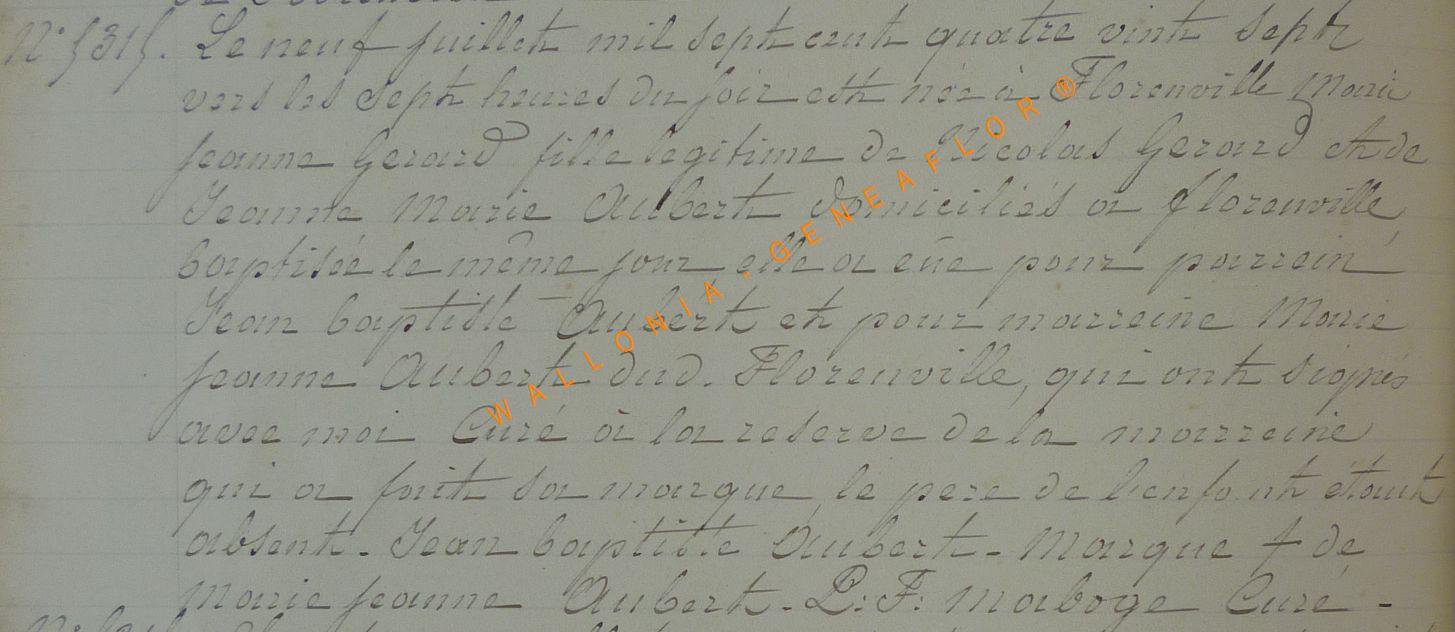 N° 5315. Le neuf juillet mil sept cent quatre vint sept
vers les sept heures du soir est née à Florenville Marie
jeanne Gerard fille legitime de Nicolas Gerard et de
Jeanne Marie Aubert domiciliés a florenville,
baptisée le même jour, elle a eue pour parrein
Jean baptiste Aubert et pour marreine Marie
jeanne Aubert dud. Florenville, qui ont signés
avec moi Curé à la reserve de la marreine
qui a fait sa marque, le pere de l'enfant étant
absent. Jean baptiste Aubert - Marque + de
Marie jeanne Aubert - P: F: Maboge Curé -
WALLONIA . GENEAFLOR ®